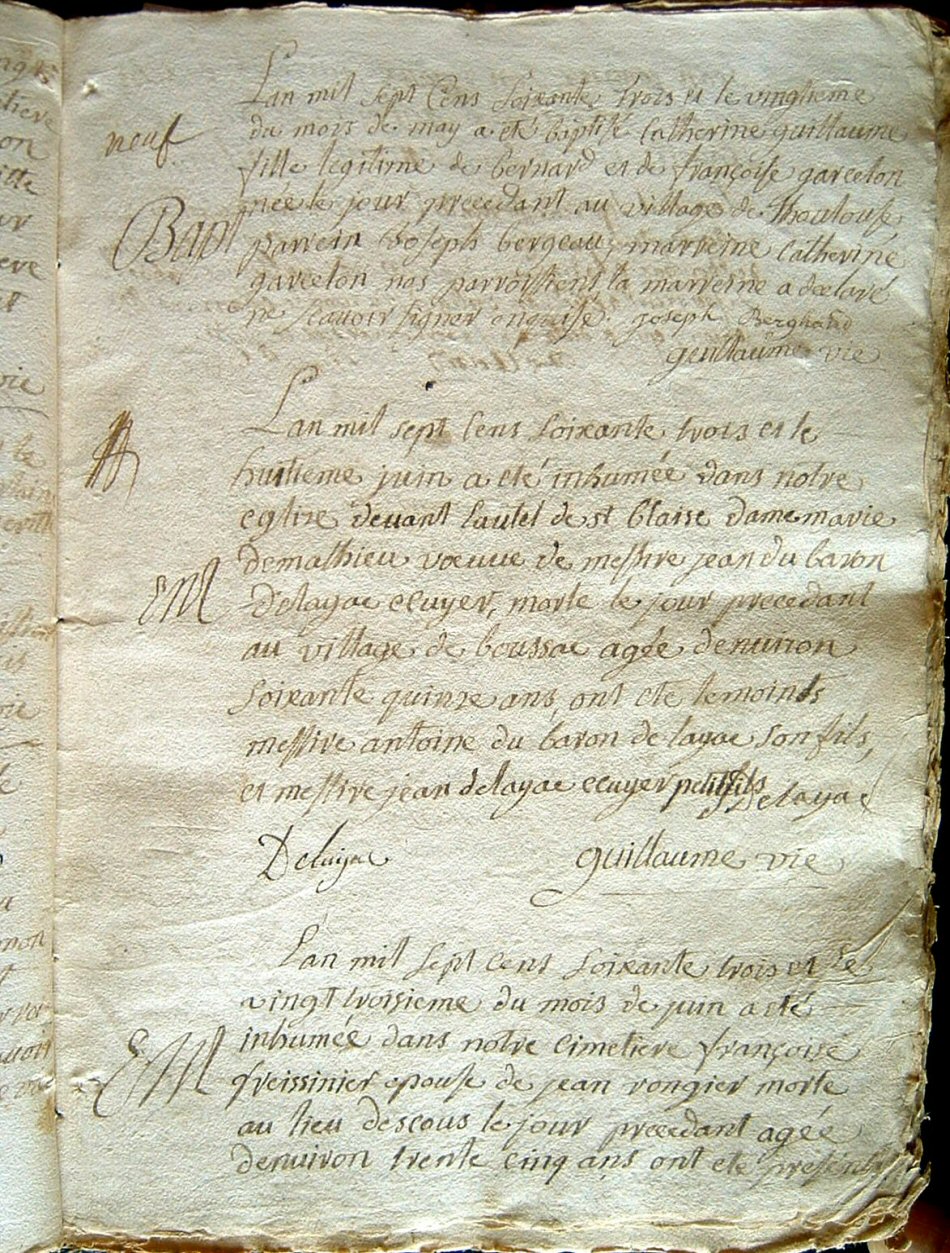 neuf
Bapt
Lan mil sept Cens Soixante trois et le vingtieme
du mois de may a été baptisé Catherine guillaume
fille legitime de bernard et de françoise garcelon
née le jour precedant au village de
parrein joseph bergeau, marreine Catherine
garcelon nos parroissiens la marreine a declaré
ne scavoir signer joseph
guillaume vie
Lan mil sept Cens Soixante trois et le
huitieme juin a eté inhumée dans notre
eglise devant lautel de st blaise dame marie
demathieu de messire jean du baron
Delayac ecuyer, morte le jour precedant
au village de boussac agée denuiron
soixante quinze ans, ont eté temoints
messire antoine du baron de layac son fils,
et messire jean delayac ecuyer petit fils Delayac
Delayac guillaume vie
Lan mil sept cens soixante trois et le
vingt troisieme du mois de juin a eté
inhumée dans notre cimetiere françoise
freissinier epouse de jean rongier morte
au lieu descous le jour precedant agée
denuiron trente cinq ans ont eté